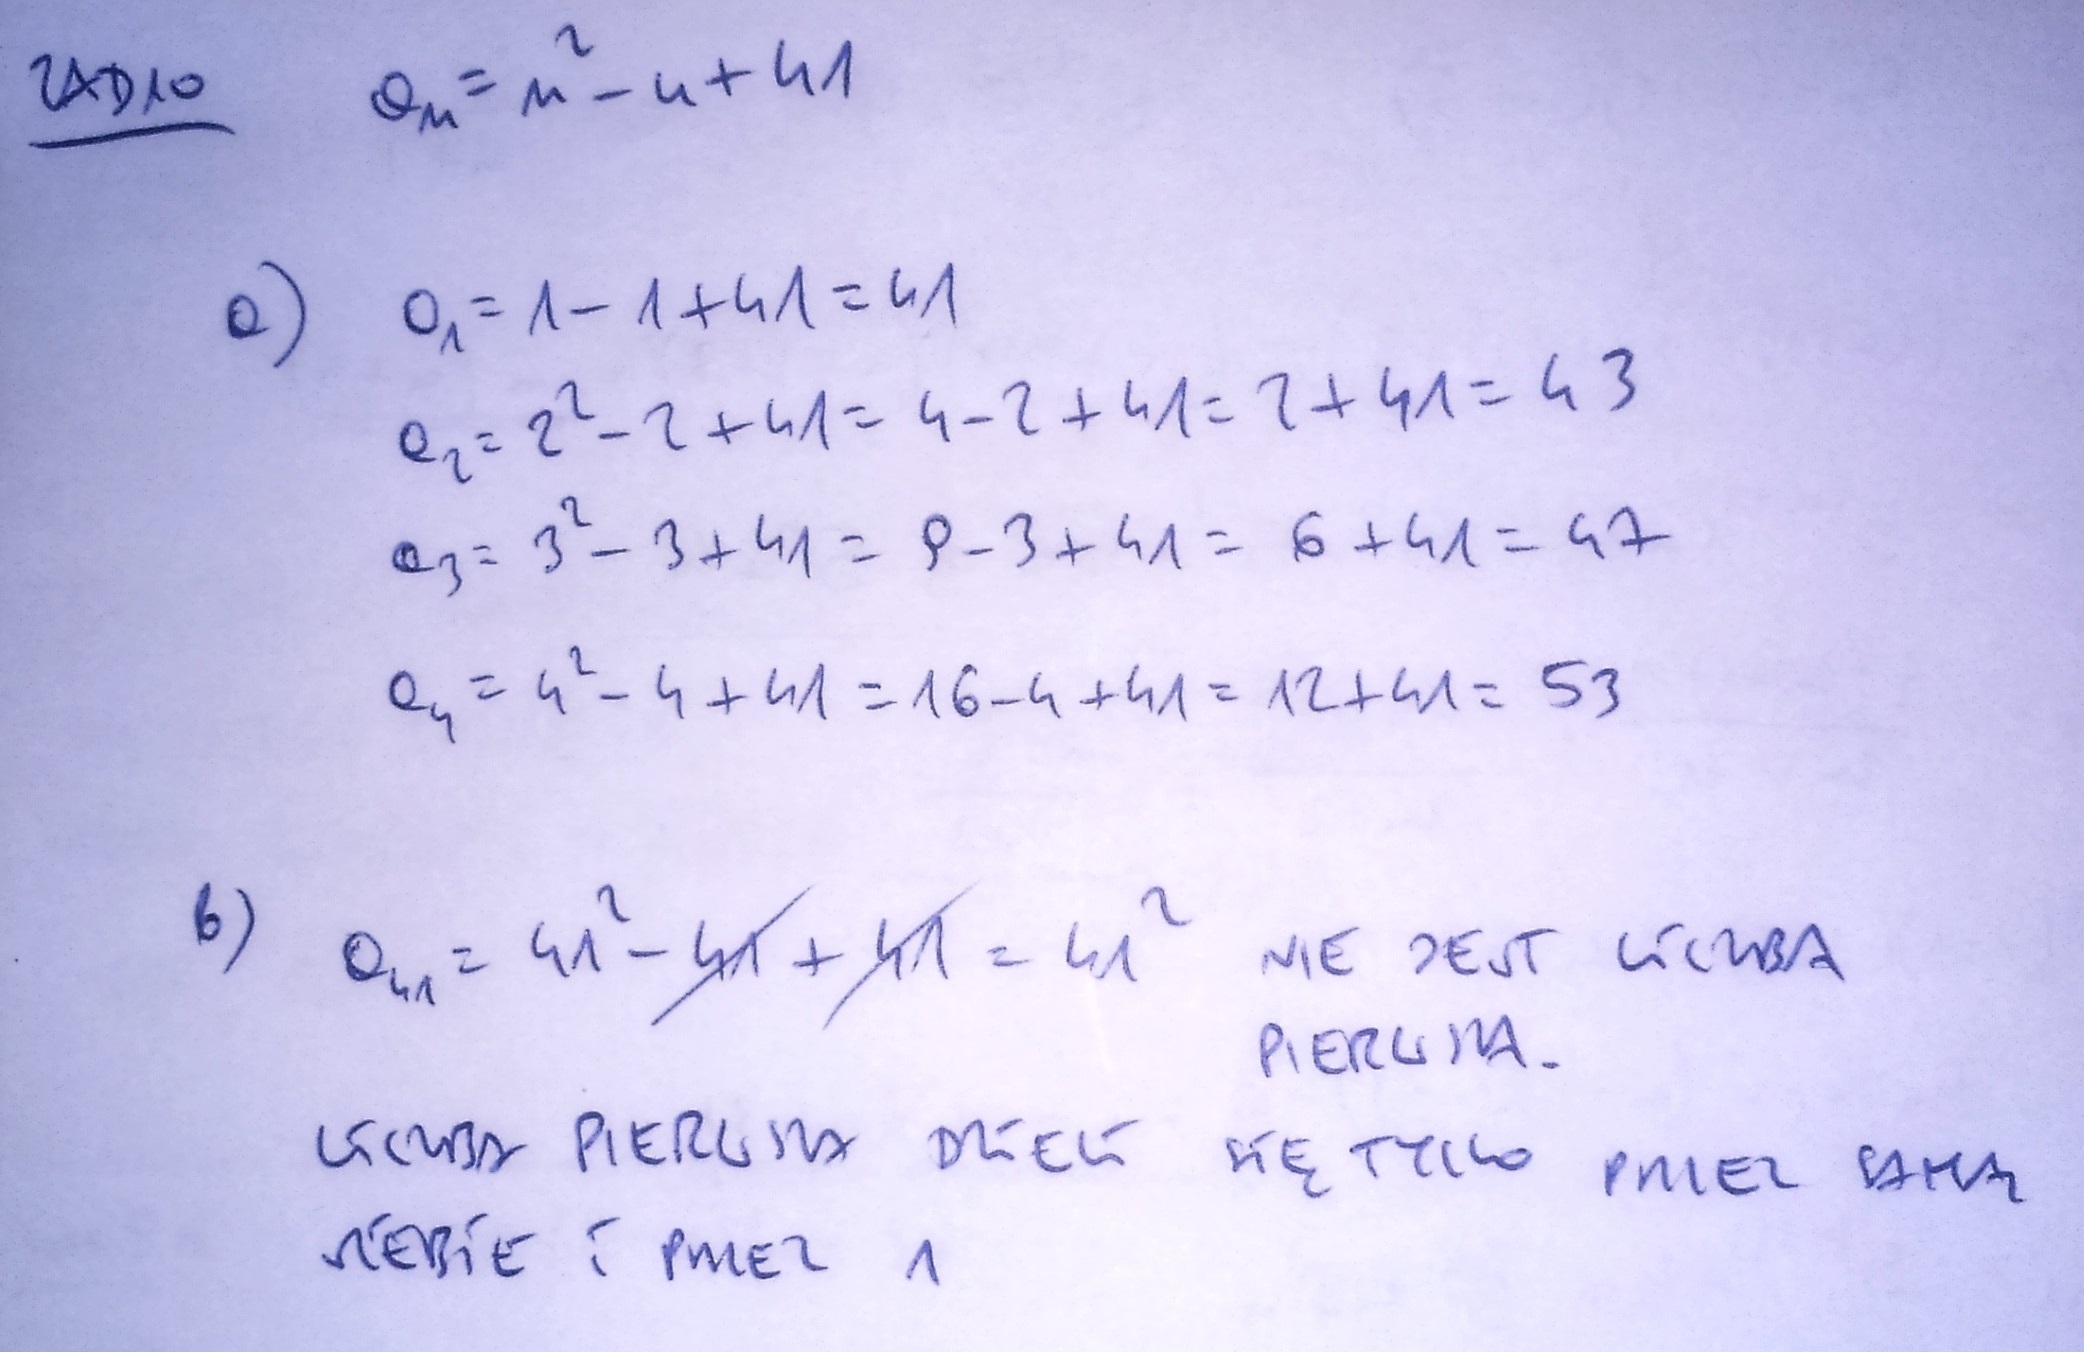 ZAD10 aₙ = n² - n + 41
a) a₁ = 1 - 1 + 41 = 41
a₂ = 2² - 2 + 41 = 4 - 2 + 41 = 2 + 41 = 43
a₃ = 3² - 3 + 41 = 9 - 3 + 41 = 6 + 41 = 47
a₄ = 4² - 4 + 41 = 16 - 4 + 41 = 12 + 41 = 53
b) a₄₁ = 41² - 41 + 41 = 41² NIE JEST LICZBA
PIERWSZA.
LICZBA PIERWSZA DZIELI SIĘ TYLKO PRZEZ SAMĄ
SIEBIE I PRZEZ 1